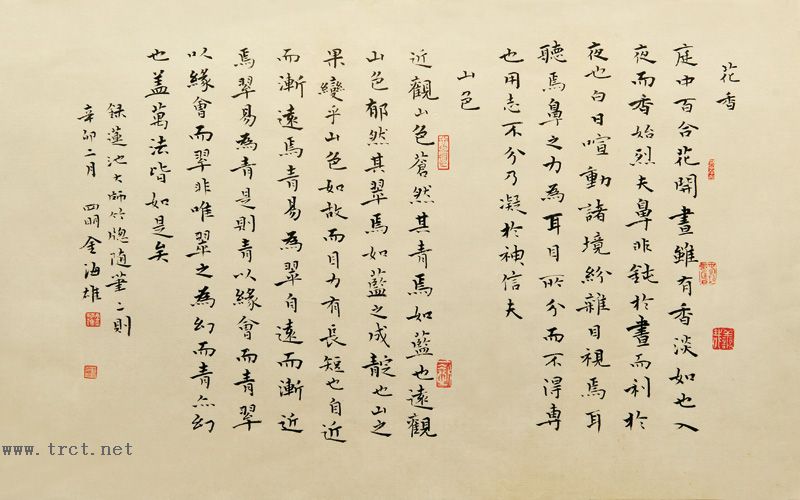 花香
庭中百合花開晝雖有香淡如也入
夜而香始烈夫鼻非鈍於晝而利於
夜也白日喧動諸境紛雜目視焉耳
聽焉鼻之力為耳目所分而不得專
也用志不分乃凝於神信夫
山色
近觀山色蒼然其青焉如藍也遠觀
山色郁然其翠焉如藍之成靛也山之
果變乎山色如故而目力有長短也自近
而漸遠焉青易為翠自遠而漸近
焉翠易為青是則青以緣會而青翠
以緣會而翠非唯翠之為幻而青亦幻
也盖萬法皆如是矣
録蓮池大師竹牕隨筆二則
辛卯二月 四明金海雄
www.trct.net